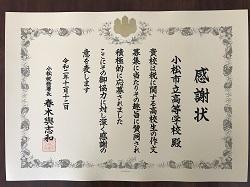 感謝状
小松市立高等学校 殿
貴校は税に関する高校生の作文
募集に当たりその趣旨に賛同され
積極的に応募されました
ここにその御協力に対し深く感謝の
意を表します
令和二年十一月十二日
小松税務署長 春木與志和